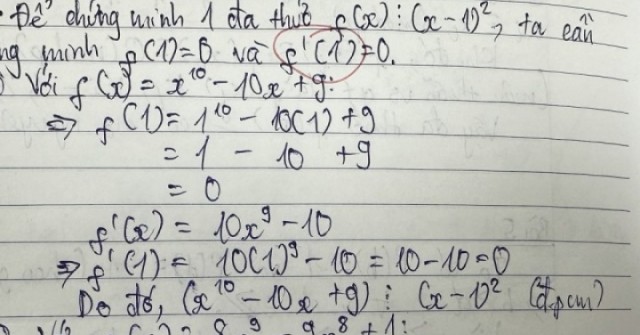 Để chứng minh 1 đa thức f(x) ⋮ (x-1)², ta cần
ng minh f(1)=0 và f'(1)=0.
Với f(x) = x¹⁰ - 10x + 9:
⇒ f(1) = 1¹⁰ - 10(1) + 9
= 1 - 10 + 9
= 0
f'(x) = 10x⁹ - 10
⇒ f'(1) = 10(1)⁹ - 10 = 10 - 10 = 0
Do đó, (x¹⁰ - 10x + 9) ⋮ (x-1)² (đpcm)